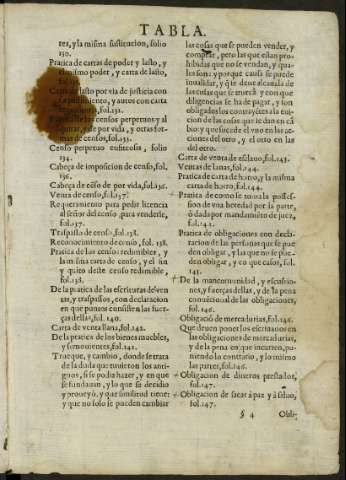 TABLA.
tes, y la misma sustitucion, folio
130.
Pratica de cartas de poder y lasto, y
mismo poder, y carta de lasto,
Carta de lasto por via de justicia con
pedimiento, y autos con carta
fol.132.
censos perpetuos y al
quitar, y de por vida, y otras for-
mas de censos, fol.133.
Censo perpetuo enfiteosis, folio
134.
Cabeça de imposicion de censo, fol.
136.
Cabeça de céso de por vida, fol.136.
Venta de censo, fol.137.
Requerimiento para pedir licencia
al señor del censo, para venderle,
fol.137.
Traspasso de censo, fol.138.
Reconocimiento de censo, fol. 138.
Pratica de los censos redimibles, y
la misma carta de censo, y el fin
y quito deste censo redimible,
fol.138.
De la pratica de las escrituras de ven
tas, y traspassos, con declaracion
en que puntos consisten las fuer-
ças dellas, fol.140.
Carta de venta llana, fol.142.
De la pratica de los bienes muebles,
y semouientes, fol.142.
Trueque, y cambio, donde se trata
de la duda que tuuieron los anti-
guos, si se podia hazer, y en que
se fundauan, y lo que se decidio
y proueyó, y que similitud tiene:
y que no solo se pueden cambiar
las cosas que se pueden vender, y
comprar, pero las que estan pro-
hibidas que no se vendan, y qua-
les son: y por que causa se puede
inualidar, y q̃ se deue alcauala de
las cosas que se truecã y con que
diligencias se ha de pagar, y son
obligados los contrayétes a la eui-
cion de las cosas que se dan en cã
bio, y que sucede el vno en las ac-
ciones del otro, y el otro en las
del otro.
Carta de venta de esclauo, fol.143.
Ventas de lanas, fol.144.
Pratica de carta de horro, y la misma
carta de horro, fol.144.
Pratica de como se toma la posses-
sion de vna heredad por la parte,
ó dada por mandamiéto de juez,
fol.142.
Pratica de obligaciones con decla-
racion de las personas que se pue
den obligar, y las que no se pue-
den obligar, y en que casos, fol.
145.
De la mancomunidad, y escusio-
nes, y fuerças dellas, y de la pena
conuencional de las obligaciones.
fol.146.
Obligació de mercadurias, fol.146.
Que deuen poner los escriuanos en
las obligaciones de mercadurias,
y de la pena en que incurren, po-
niendo lo contrario, y lo mismo
las partes, fol.146.
Obligacion de dineros prestados,
fol.147.
Obligacion de sacar a paz y à saluo,
fol.147.
§ 4 Obli-